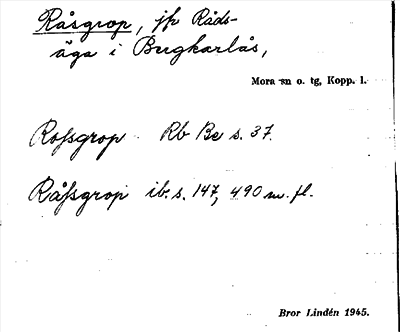 Råsgrop, jfr Råds-
äga i Bergkarlås,
Mora sn o. tg, Kopp. l.
Rossgrop Rb Be s. 37.
Råssgrop ib. s. 147, 490 m. fl.
Bror Lindén 1945.